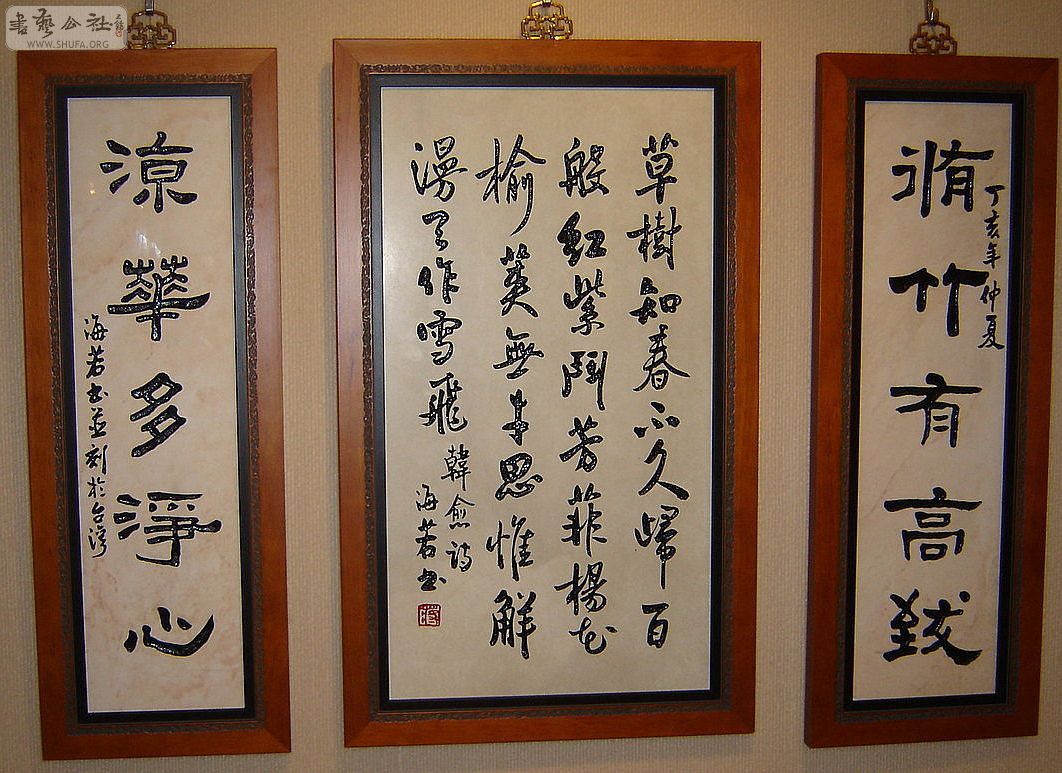 書藝公社
WWW.SHUFA.ORG
丁亥年仲夏
脩竹有高致
草樹知春不久歸百
般紅紫鬥芳菲楊花
榆莢無才思惟解
漫天作雪飛
韓愈詩
海若書
涼華多淨心
海若書並刻於台灣